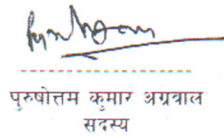 पुरुषोत्तम कुमार अग्रवाल
सदस्य